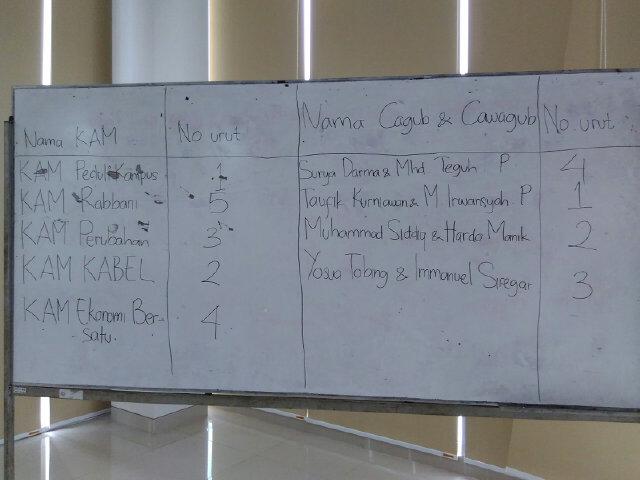 Nama KAM No urut Nama Cagub & Cawagub No. urut
KAM Peduli Kampus 1 Surya Darma & Mhd. Teguh P 4
KAM Rabbani 5 Taufik Kurniawan & M. Irwansyah P 1
KAM Perubahan 3 Muhammad Siddiq & Hardo Manik 2
KAM KABEL 2 Yosua Tobing & Immanuel Siregar 3
KAM Ekonomi Ber- 4
satu.